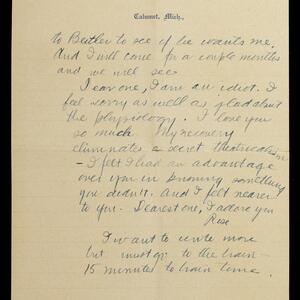 Calumet, Mich.,
to Butler to see if he wants me.
And I will come for a couple months
and we will see.
Dear one, I am an idiot. I
feel sorry as well as glad about
the physiology. I love you
so much. My recovery
eliminates a secret theatricalism
- I felt I had an advantage
over you in knowing something
you didn't. And I felt nearer
to you. Dearest one, I adore you
Rose
I want to write more
but must go to the train -
15 minutes to train time.